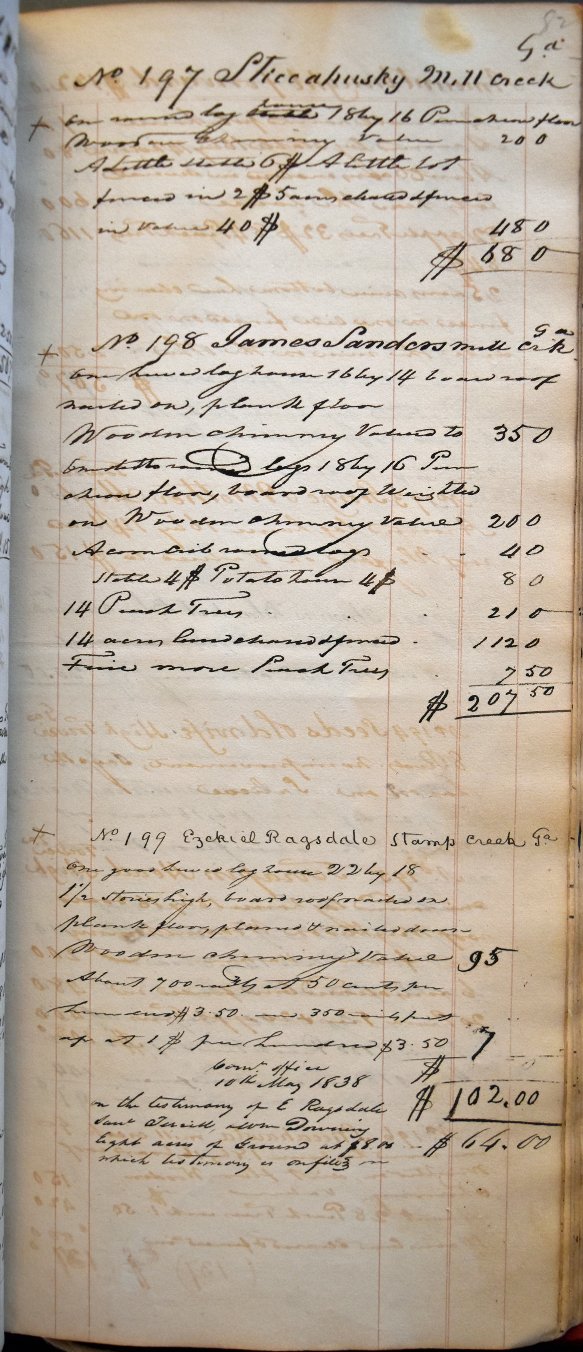 82
Ga
No. 197 Sticcahusky Mill Creek
+ One round log house 18 by 16 Puncheon floor
Wooden Chimney Value 20 0
A Little stable 6$ A little lot
fenced in 2$ 5 acres cleared & fenced
in Value 40$ 48 0
$ 68 0
Ga
+ No. 198 James Sanders mill Crk
One hewed log house 16 by 14 board roof
nailed on, plank floor
Wooden chimney Valued to 35 0
One ditto round logs 18 by 16 Pun
cheon floor, board roof Weighted
on Wooden chimney Value 20 0
A corn crib round logs 4 0
Stable 4$ Potato house 4$ 8 0
14 Peach Trees 21 0
14 acres land cleared & fenced 112 0
Five more Peach Trees 7 50
$ 207 50
+ No. 199 Ezekiel Ragsdale Stamp Creek Ga
One good hewed log house 22 by 18
1½ Stories high, board roof nailed on
plank floor, planed & nailed down
Wooden chimney Value 95
About 700 rails at 50 cents per
hundred $3.50. 350 put
up at 1$ per hundred $3.50 7
Comr. office $
10th May 1838
$ 102.00
on the testimony of E Ragsdale
Saml & Wm Downing
Eight acres of Ground at $8.00 $ 64.00
which testimony is on file